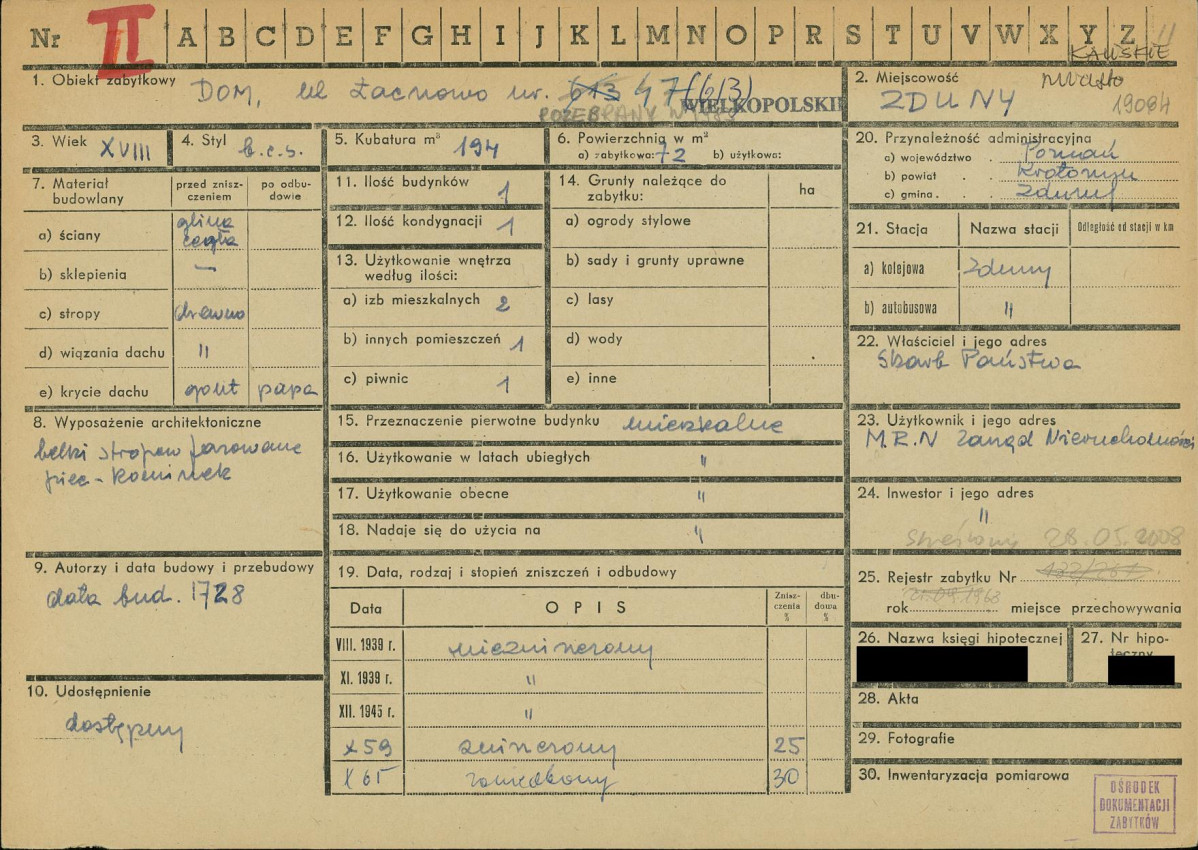 Nr II A B C D E F G H I J K L M N O P R S T U V W X Y Z 11
KALISKIE
1. Obiekt zabytkowy DOM, ul Łacnowo nr. 613 47 (613)
WIELKOPOLSKIE
ROZEBRANY W
2. Miejscowość miasto
ZDUNY 19084
3. Wiek XVIII
4. Styl b.c.s.
5. Kubatura m³ 194
6. Powierzchnia w m²
a) zabytkowa: 72 b) użytkowa:
7. Materiał budowlany
przed znisz-
czeniem
po odbu-
dowie
a) ściany glina
cegła
b) sklepienia —
c) stropy drewno
d) wiązania dachu "
e) krycie dachu gont papa
8. Wyposażenie architektoniczne
belki stropów fazowane
piec - kominek
9. Autorzy i data budowy i przebudowy
data bud. 1728
10. Udostępnienie
dostępny
11. Ilość budynków 1
12. Ilość kondygnacji 1
13. Użytkowanie wnętrza
według ilości:
a) izb mieszkalnych 2
b) innych pomieszczeń 1
c) piwnic 1
14. Grunty należące do
zabytku:
ha
a) ogrody stylowe
b) sady i grunty uprawne
c) lasy
d) wody
e) inne
15. Przeznaczenie pierwotne budynku mieszkalne
16. Użytkowanie w latach ubiegłych "
17. Użytkowanie obecne "
18. Nadaje się do użycia na "
19. Data, rodzaj i stopień zniszczeń i odbudowy
Data OPIS
Znisz-
czenia
%
dbu-
dowa
%
VIII. 1939 r. niezniszczony
XI. 1939 r. "
XII. 1945 r. "
X 59 zniszczony 25
X 65 zamieszkały 30
20. Przynależność administracyjna
a) województwo . Poznań
b) powiat . . Krotoszyn
c) gmina . . Zduny
21. Stacja Nazwa stacji Odległość od stacji w km
a) kolejowa Zduny
b) autobusowa "
22. Właściciel i jego adres
Skarb Państwa
23. Użytkownik i jego adres
M.R.N Zarząd Nieruchomości
24. Inwestor i jego adres
"
Skreślony 28.05.2008
25. Rejestr zabytku Nr
rok miejsce przechowywania
26. Nazwa księgi hipotecznej
27. Nr hipo-
teczny
28. Akta
29. Fotografie
30. Inwentaryzacja pomiarowa
OŚRODEK
DOKUMENTACJI
ZABYTKÓW